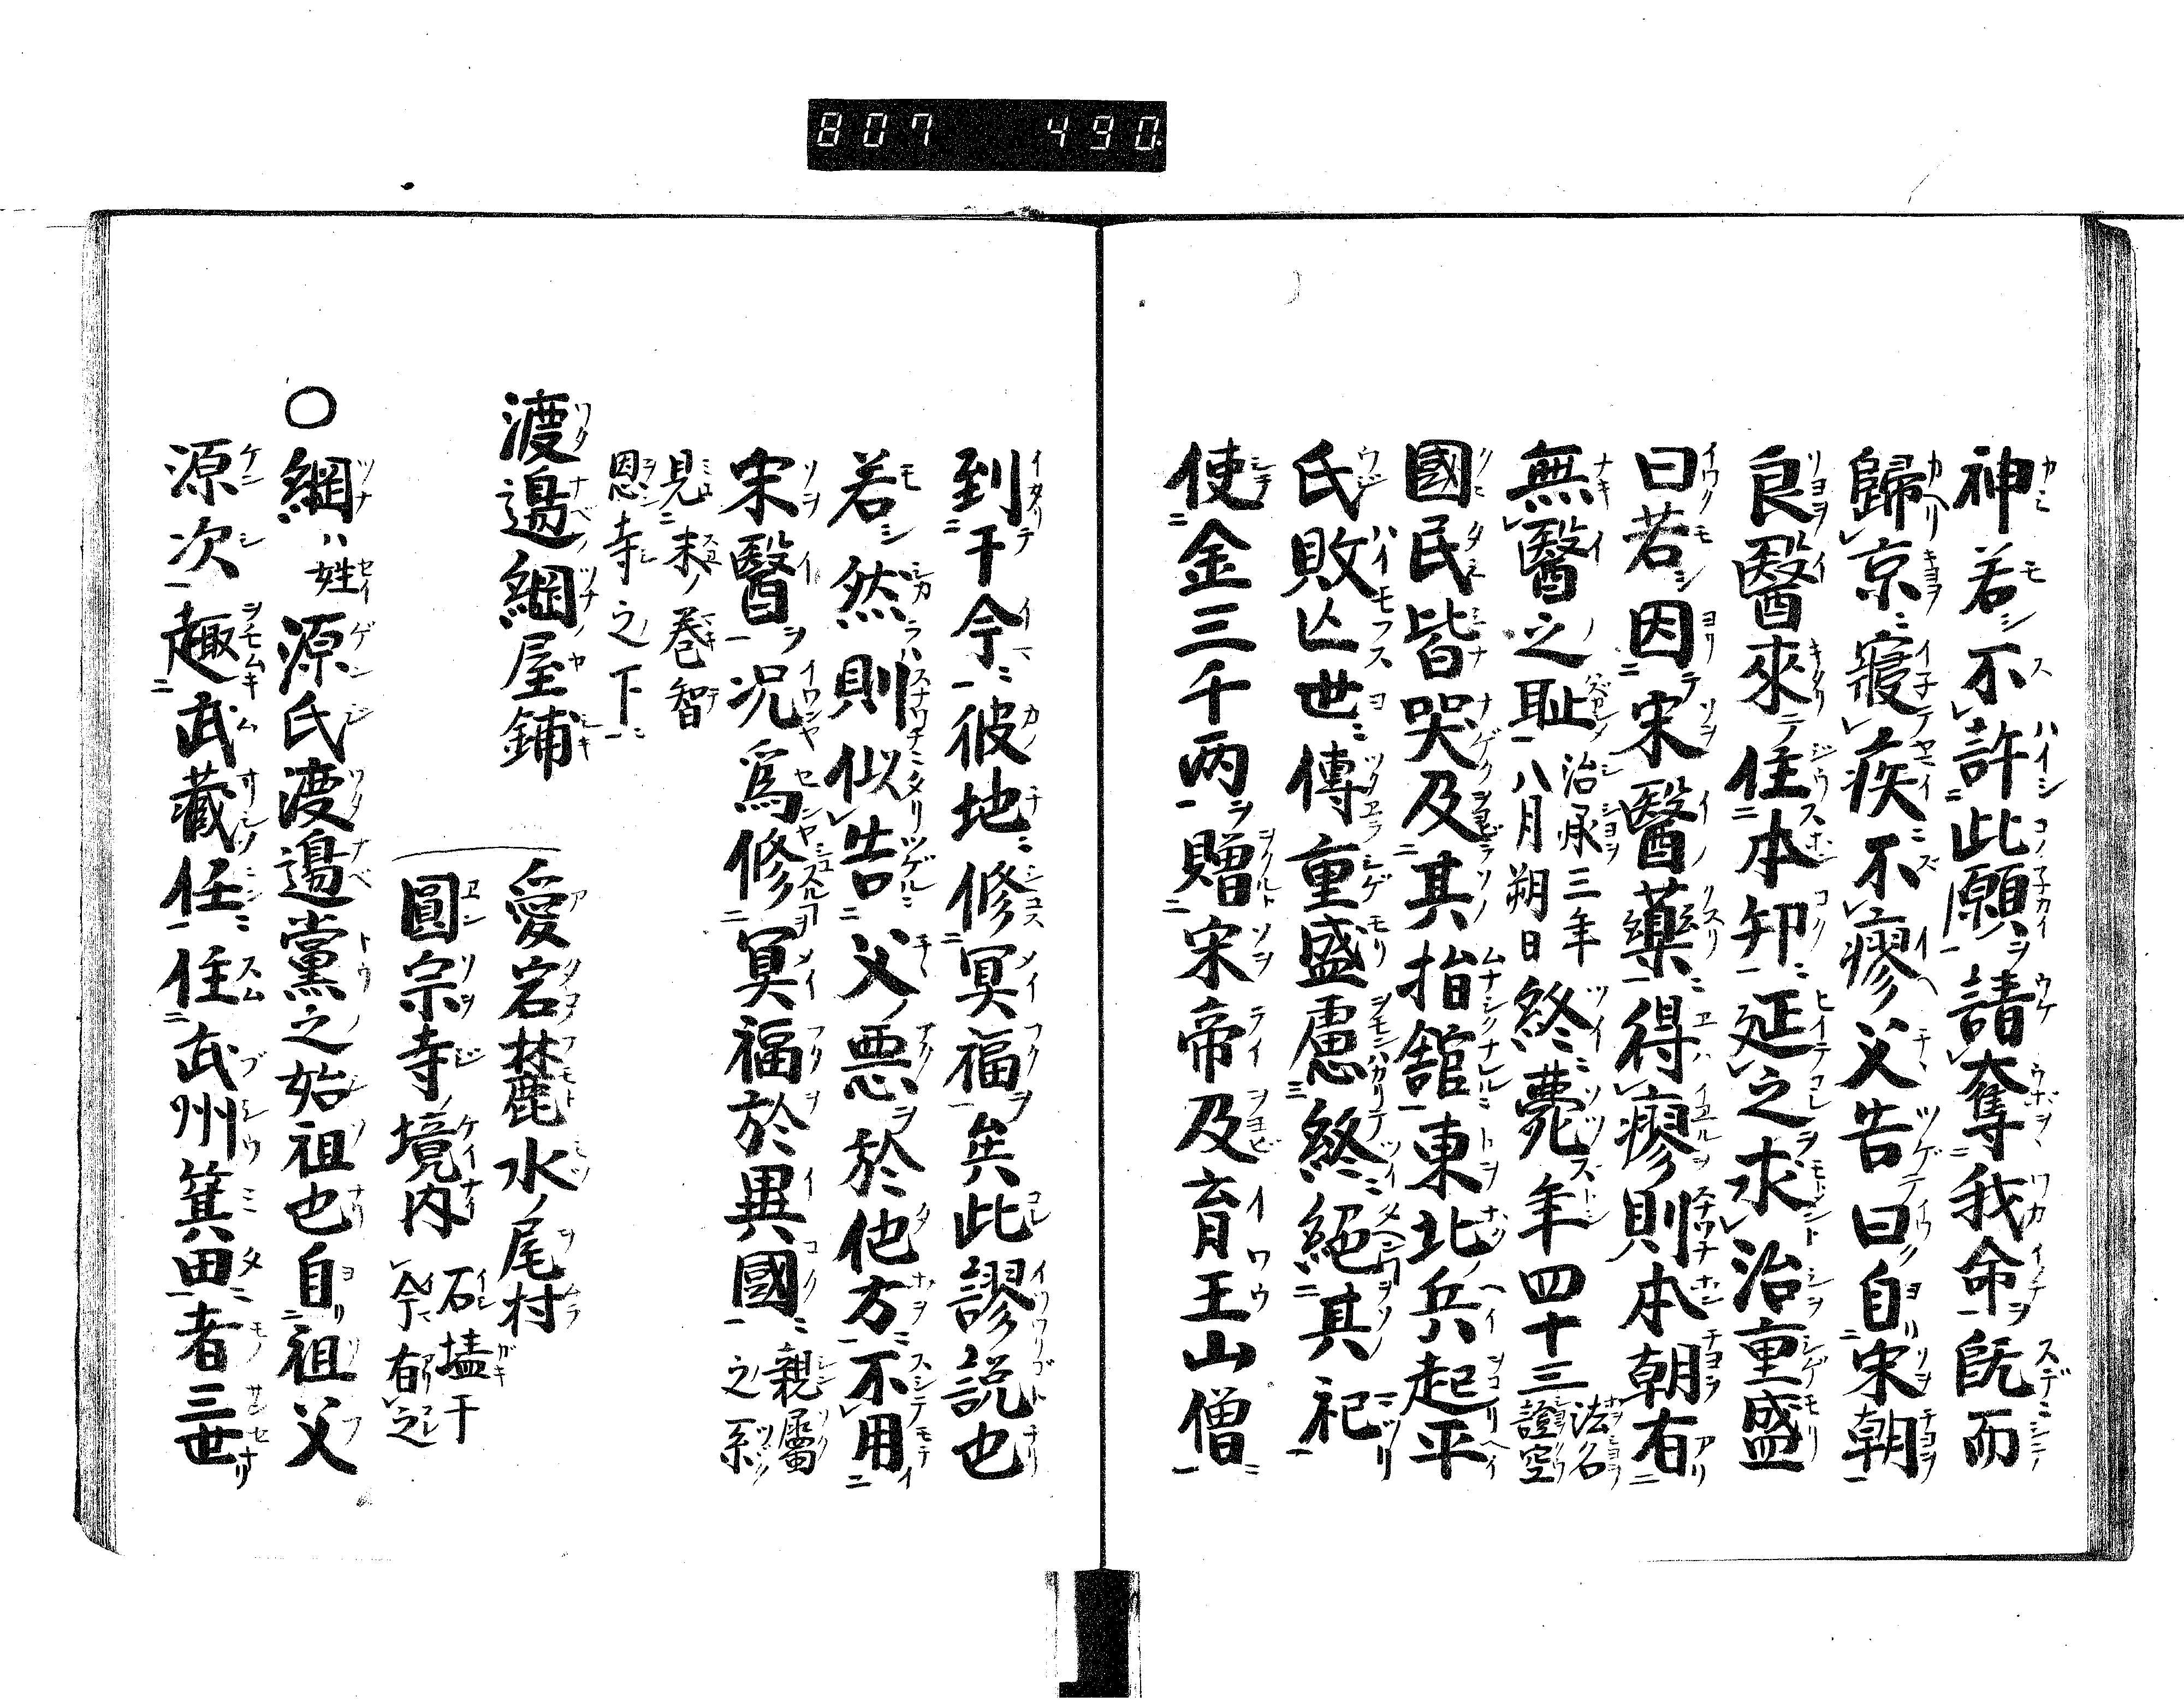 807 490
神若不許此願請奪我命既而
歸京寢疾不瘳父告曰自宋朝
良醫來住本邦延之求治重盛
曰若因宋醫藥得瘳則本朝有
無醫之耻治承三年八月朔日終薨年四十三法名證空
國民皆哭及其指舘東北兵起平
氏敗亾世傳重盛慮終絕其祀
使金三千两贈宋帝及育王山僧
到于今彼地修冥福矣此謬説也
若然則似告父ノ悪於他方不用
宋醫况爲修冥福於異國親屬之系
見末ノ巻智
恩寺之下
渡邉綱屋鋪
愛宕麓水ノ尾村
圓宗寺境内石墻于今有之
〇綱ハ姓源氏渡邉黨之始祖也自祖父
源次趣武藏任住武州箕田者三世